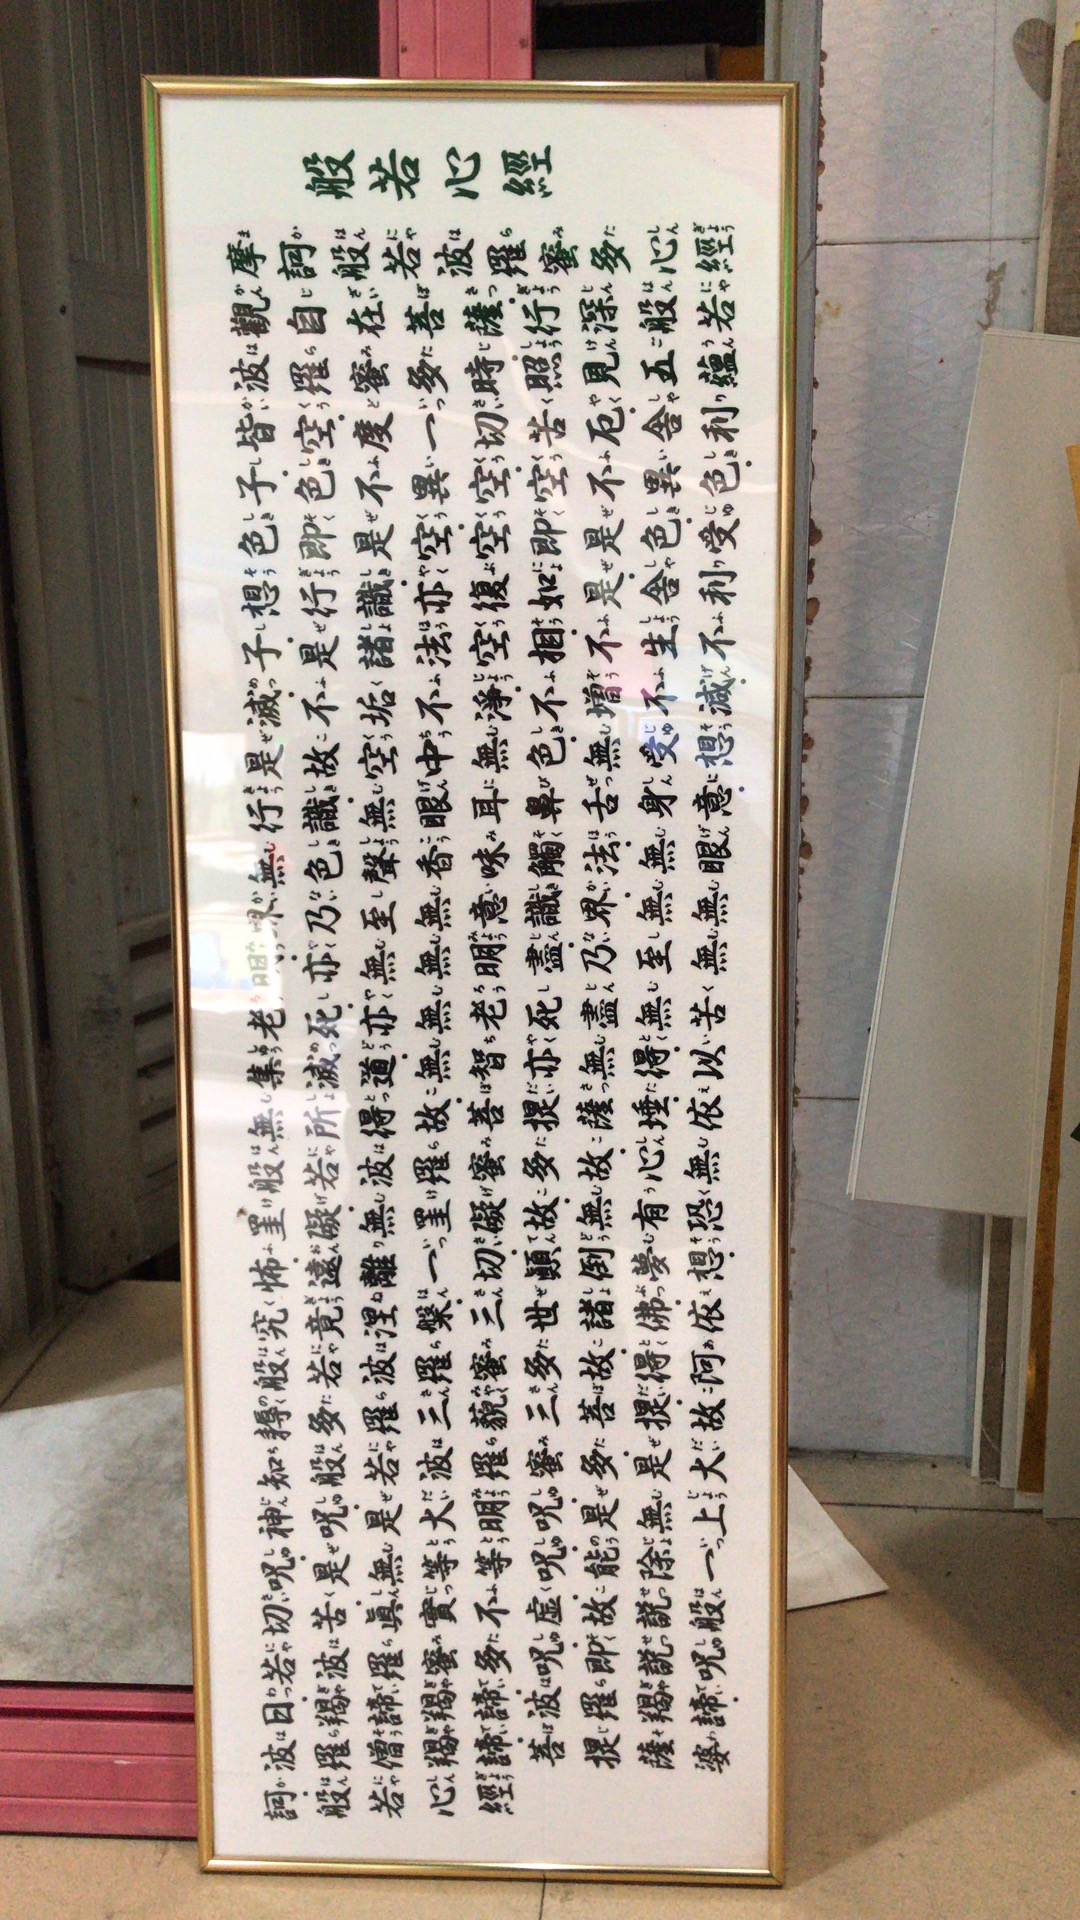 般若心經
摩訶般若波羅蜜多心經
觀自在菩薩行深般若
波羅蜜多時照見五蘊
皆空度一切苦厄舍利
子色不異空空不異色
色即是空空即是色受
想行識亦復如是舍利
子是諸法空相不生不
滅不垢不淨不増不減
是故空中無色無受想
行識無眼耳鼻舌身意
無色聲香味觸法無眼
界乃至無意識界無無
明亦無無明盡乃至無
老死亦無老死盡無苦
集滅道無智亦無得以
無所得故菩提薩埵依
般若波羅蜜多故心無
罣礙無罣礙故無有恐
怖遠離一切顛倒夢想
究竟涅槃三世諸佛依
般若波羅蜜多故得阿
耨多羅三藐三菩提故
知般若波羅蜜多是大
神呪是大明呪是無上
呪是無等等呪能除一
切苦眞實不虚故説般
若波羅蜜多呪即説呪
曰羯諦羯諦波羅羯諦
波羅僧羯諦菩提薩婆
訶般若心經